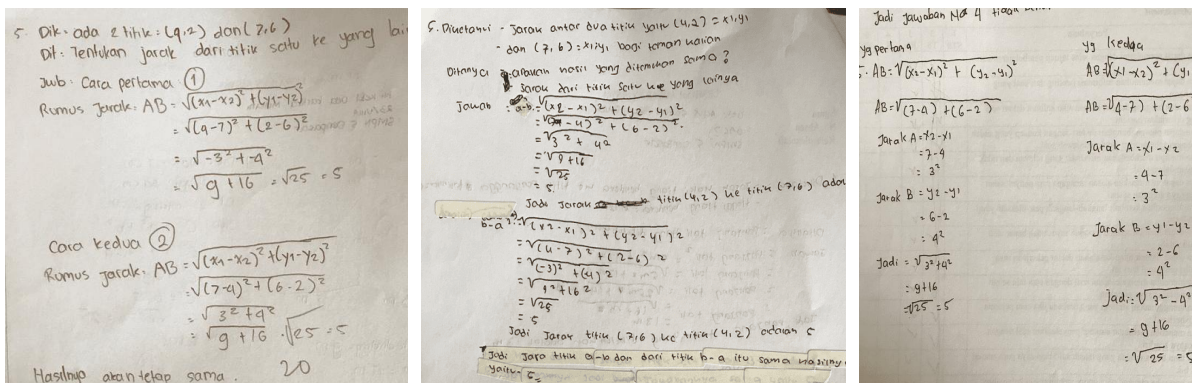 5. Dik: ada 2 titik: (4,2) dan (7,6)
Dit: Tentukan jarak dari titik satu ke yang lai
Jwb: Cara pertama ①
Rumus jarak: AB = √(x1-x2)² + (y1-y2)²
= √(4-7)² + (2-6)²
= √-3² + -4²
= √9 + 16 = √25 = 5
Cara kedua ②
Rumus jarak: AB = √(x1-x2)² + (y1-y2)²
= √(7-4)² + (6-2)²
= √3² + 4²
= √9 + 16 . √25 = 5
Hasilnya akan tetap sama. 20
5. Diketahui - Jarak antar dua titik yaitu (4,2) = x1,y1
- dan (7,6) = x1,y1 bagi teman kalian
Ditanya apakah hasil yang ditemukan sama?
- Jarak dari titik satu ke yang lainya
Jawab : a-b = √(x2-x1)² + (y2-y1)²
= √(7-4)² + (6-2)².
= √3² + 4²
= √9+16
= √25
= 5
Jadi Jarak titik (4,2) ke titik (7,6) adal
b-a = √(x2-x1)² + (y2-y1)2
= √(4-7)² + (2-6) 2
= √(-3)² + (4) 2
= √9² + 16 2
= √25
= 5
Jadi Jarak titik (7,6) ke titik (4,2) adalah 5
Jadi Jara titik a-b dan dari titik b-a itu sama hasilny
yaitu = 5
Jadi Jawaban No 4 tidak
yg pertama
AB = √(x2-x1)² + (y2-y1)²
AB = √(7-4) + (6-2)
Jarak A = x2-x1
= 7-4
= 3²
Jarak B = y2-y1
= 6-2
= 4²
Jadi = √3²+4²
= 9+16
= √25 = 5
yg kedua
AB = √(x1-x2)² + (y1
AB = √(4-7) + (2-6
Jarak A = x1-x2
= 4-7
= 3²
Jarak B = y1-y2
= 2-6
= 4²
Jadi: √3²-4²
= 9+16
= √25 = 5